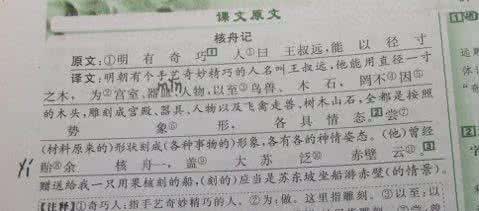 课文原文
核舟记
原文:①明 有 奇 巧[1] 人①曰 王叔远,能 以 径 寸
译文:明朝有个手艺奇妙精巧的人名叫王叔远,他能用直径一寸
之木, 为②宫室、器皿、人物,以至③鸟兽、 木 石, 罔不④因⑤
mǐn
的木头,雕刻成宫殿、器具、人物以及飞禽走兽、树木山石,全都是按照
势 象⑥ 形, 各 具 情 态。[2] 尝⑦
(材料原来的)形状刻成(各种事物的)形象,各有各的神情姿态。(他)曾经
yí
贻⑧余 核 舟一, 盖⑨ 大 苏 泛⑩ 赤壁 云⑪。[3]
赠送给我一只用果核刻的船,(刻的)应当是苏东坡坐船游赤壁(的情景)。
【注释】①奇巧人:指手艺奇妙精巧的人。②为:做。这里指雕刻。③以至:以
[1]
[2]